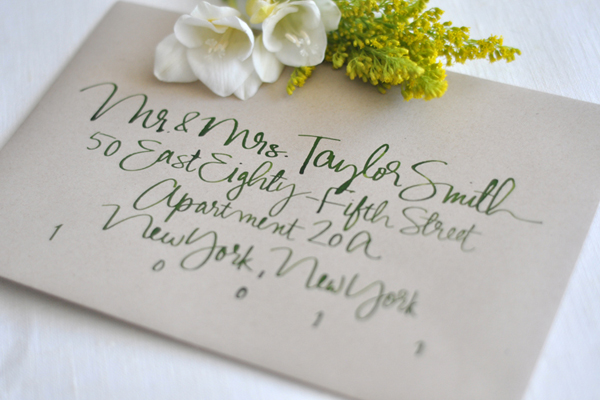 Mr & Mrs. Taylor Smith
50 East Eighty-Fifth Street
Apartment 20A
New York, New York
1 0 0 1 1